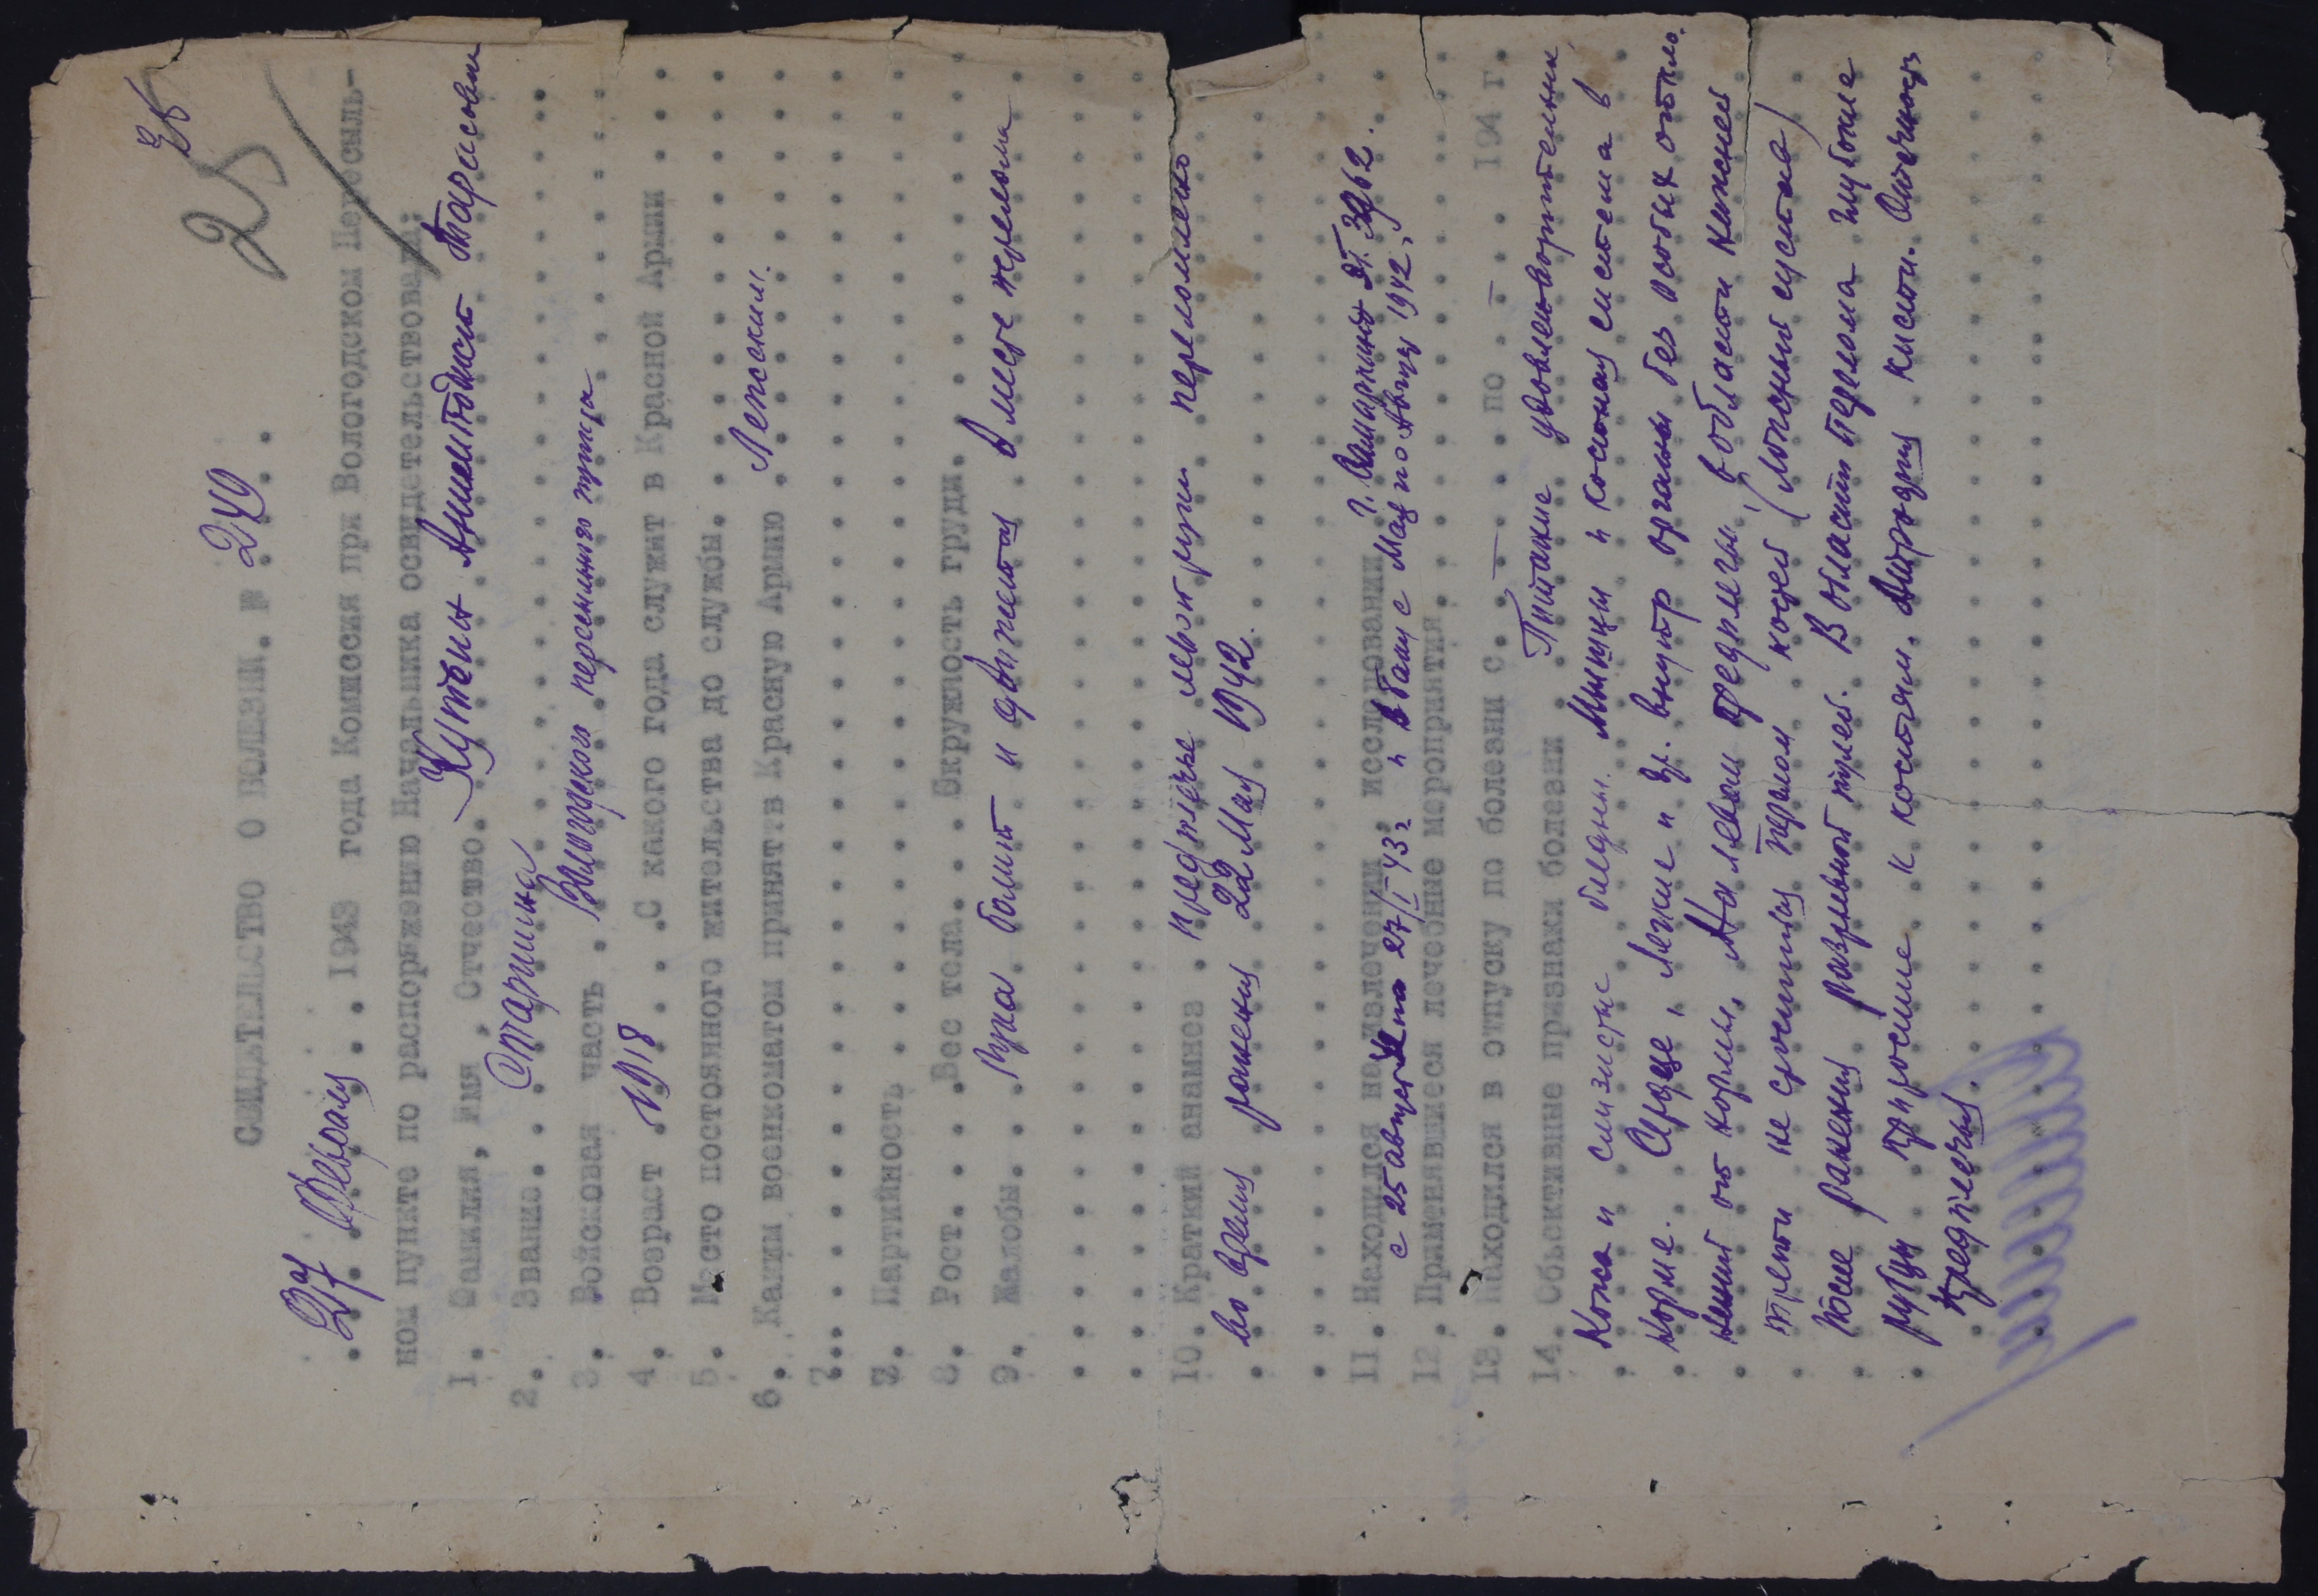 25
СВИДЕТЕЛЬСТВО О БОЛЕЗНИ. № 249
27 Февраля 1943 года Комиссия при Вологодском Пересыль-
ном пункте по распоряжению Начальника освидетельствовала:
1. Фамилия, Имя, Отчество. Кутбин Тарасович
2. Звание. Старшина
3. Войсковая часть. Вологодского пересыльного пункта
4. Возраст 1918 С какого года служит в Красной Армии
5. Место постоянного жительства до службы.
6. Каким военкоматом принят в Красную Армию Ленским.
7.
7. Партийность
8. Рост. Вес тела. Окружность груди.
9. Жалобы. Рука болит и движется в месте перелома
10. Краткий анамнез. предплечье левой руки переломлено
во время ранения 22 Мая 1942.
11. Находился на излечении, исследовании
с 25 августа по 27/I 43 г и в Бат с Мая по Август 1942,
12. Применявшиеся лечебные мероприятия.
13. Находился в отпуску по болезни с. – по – 194 г.
14. Объективные признаки болезни Питание удовлетворительное
Кожа и слизистые бледны. Мышцы и костная система в
норме. Сердце, Легкие и др. внутр органы без особых откло-
нений от нормы. На левом предплечьи, в области нижней
трети не сросшийся перелом костей (ложный сустав)
после ранения разрывной пулей. В области перелома глубокие
рубцы приросшие к костям. кисти.
предплечья